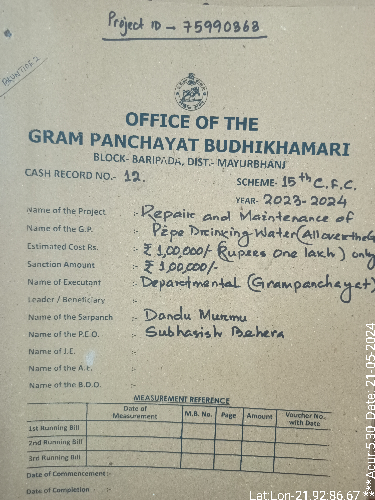 Project ID - 75990868
PRIORITY
OFFICE OF THE
GRAM PANCHAYAT BUDHIKHAMARI
BLOCK- BARIPADA, DIST.- MAYURBHANJ
CASH RECORD NO.- 12.
SCHEME- 15th C.F.C.
YEAR- 2023-2024
Name of the Project :- Repair and Maintenance of
Name of the G.P. :- Pipe Drinking Water (All over the G
Estimated Cost Rs. :- ₹ 1,00,000/- (Rupees One lakh) only
Sanction Amount :- ₹ 1,00,000/-
Name of Executant :- Departmental (Grampanchayat)
Leader / Beneficiary :-
Name of the Sarpanch :- Dandu Murmu
Name of the P.E.O. :- Subhasish Behera
Name of J.E. :-
Name of the A.E. :-
Name of the B.D.O. :-
MEASUREMENT REFERENCE
Date of Measurement M.B. No. Page Amount Voucher No. with Date
1st Running Bill
2nd Running Bill
3rd Running Bill
Date of Commencement :-
Date of Completion
Lat:Lon-21.92:86.67
***Acur:5.30 Date: 21-05-2024